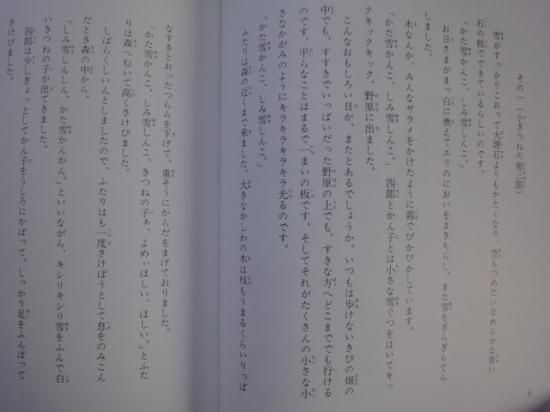 その一（小ぎつねの紺三郎）
雪がすっかりこおって大理石よりもかたくなり、空もつめたいなめらかな青い
石の板でできているらしいのです。
「かた雪かんこ、しみ雪しんこ。」
お日さまがまっ白に燃えてユリのにおいをまきちらし、また雪をぎらぎらてら
しました。
木なんか、みんなザラメをかけたように霜でぴかぴかしています。
「かた雪かんこ、しみ雪しんこ。」四郎とかん子とは小さな雪ぐつをはいてキッ
クキックキック、野原に出ました。
こんなおもしろい日が、またとあるでしょうか。いつもは歩けないきびの畑の
中でも、すすきでいっぱいだった野原の上でも、すきな方へどこまででも行ける
のです。平らなことはまるで一まいの板です。そしてそれがたくさんの小さな小
さなかがみのようにキラキラキラキラ光るのです。
「かた雪かんこ、しみ雪しんこ。」
ふたりは森の近くまで来ました。大きなかしわの木は枝もうまるくらいりっぱ
なすきとおったつららを下げて、重そうにからだをまげておりました。
「かた雪かんこ、しみ雪しんこ。きつねの子ぁ、よめぃほしい、ほしい。」とふた
りは森へむいて高くさけびました。
しばらくしいんとしましたので、ふたりはも一度さけぼうとして息をのみこん
だとき森の中から、
「しみ雪しんしん、かた雪かんかん。」といいながら、キシリキシリ雪をふんで白
いきつねの子が出てきました。
四郎は少しぎょっとしてかん子をうしろにかばって、しっかり足をふんばって
さけびました。